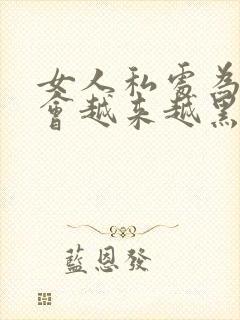 女人私處為
會越來越黑
藍恩發